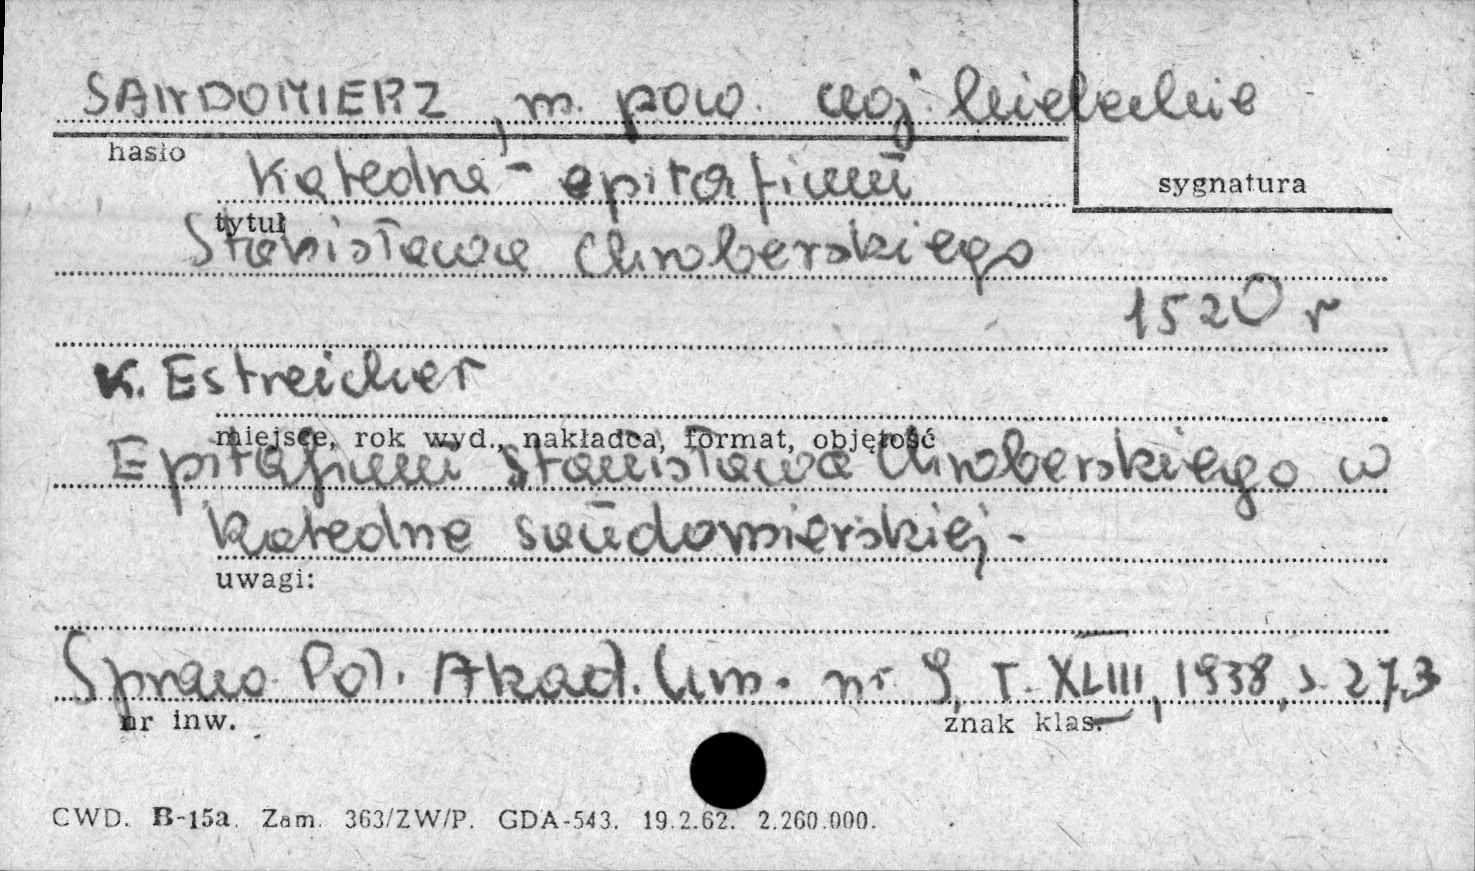 SANDOMIERZ, m. pow. woj. kieleckie
hasło
sygnatura
Katedra - epitafium
tytuł
Stanisława Chroberskiego
1520 r
K. Estreicher
miejsce, rok wyd., nakładca, format, objętość
Epitafium Stanisława Chroberskiego w
katedrze sandomierskiej -
uwagi:
Spraw. Pol. Akad. Um. nr 9, T. XLIII, 1938, s. 273
nr inw.
znak klas.
CWD. B-15a. Zam. 363/ZW/P. GDA-543. 19.2.62. 2.260.000.